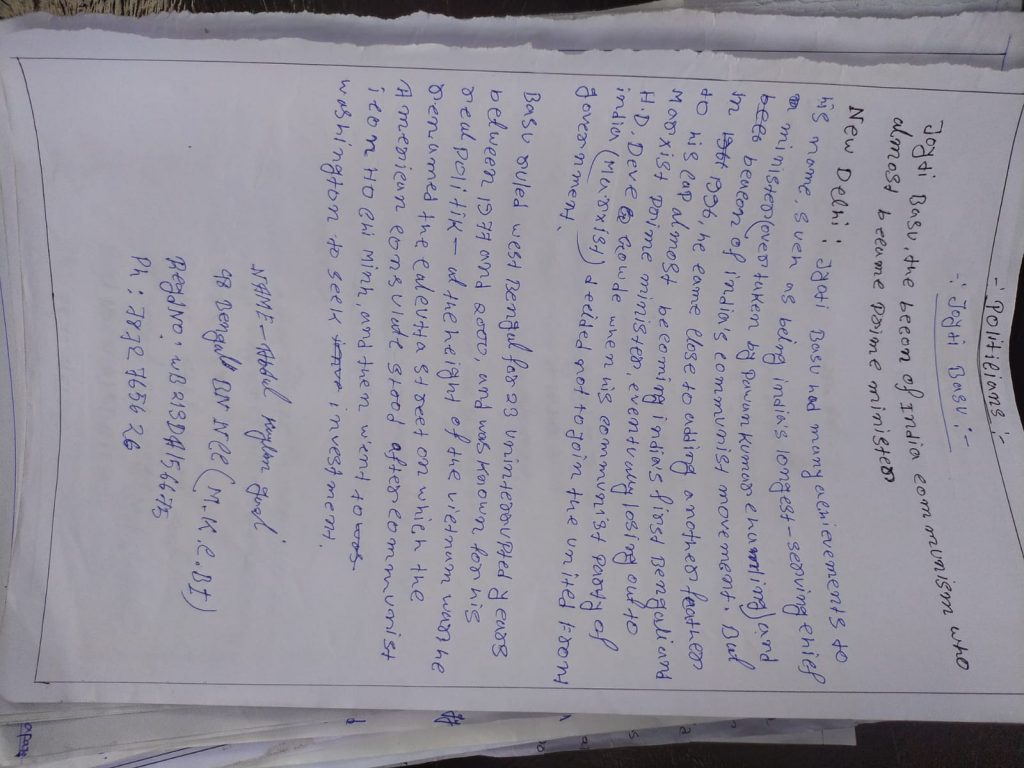 ∴ Politicians :-
∴ Joyti Basu :-
Joyti Basu, the becon of India communism who
almost became prime minister
New Delhi : Jyoti Basu had many achievements to
his name. even as being india's longest-serving chief
minister (over taken by Pawan Kumar chamling) and
beacon of india's communist movement. But
in 1996, he came close to adding another feather
to his cap almost becoming india's first Bengali and
Marxist prime minister, eventually losing out to
H.D. Deve Gowde when his communist party of
india (Marxist) decded not to join the united front
government.
Basu ruled west Bengal for 23 uninterrupted years
between 1977 and 2000, and was known for his
realpolitik - at the height of the vietnam war he
renamed the calcutta street on which the
American consulate stood after communist
icon HO chi Minh, and then went to
washington to seek invest ment.
NAME - Abdul
48 Bengal BN NCC (
Regd No :
Ph : 7872 7656 26